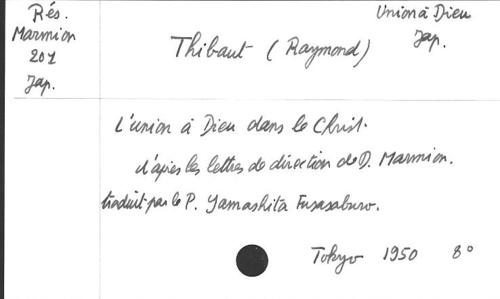 Rés.
Marmion
201
Jap.
Union à Dieu
Jap.
Thibaut (Raymond)
L'union à Dieu dans le Christ.
d'après les lettres de direction de D. Marmion.
traduit par le P. Yamashita Fusasaburo.
Tokyo 1950 8°